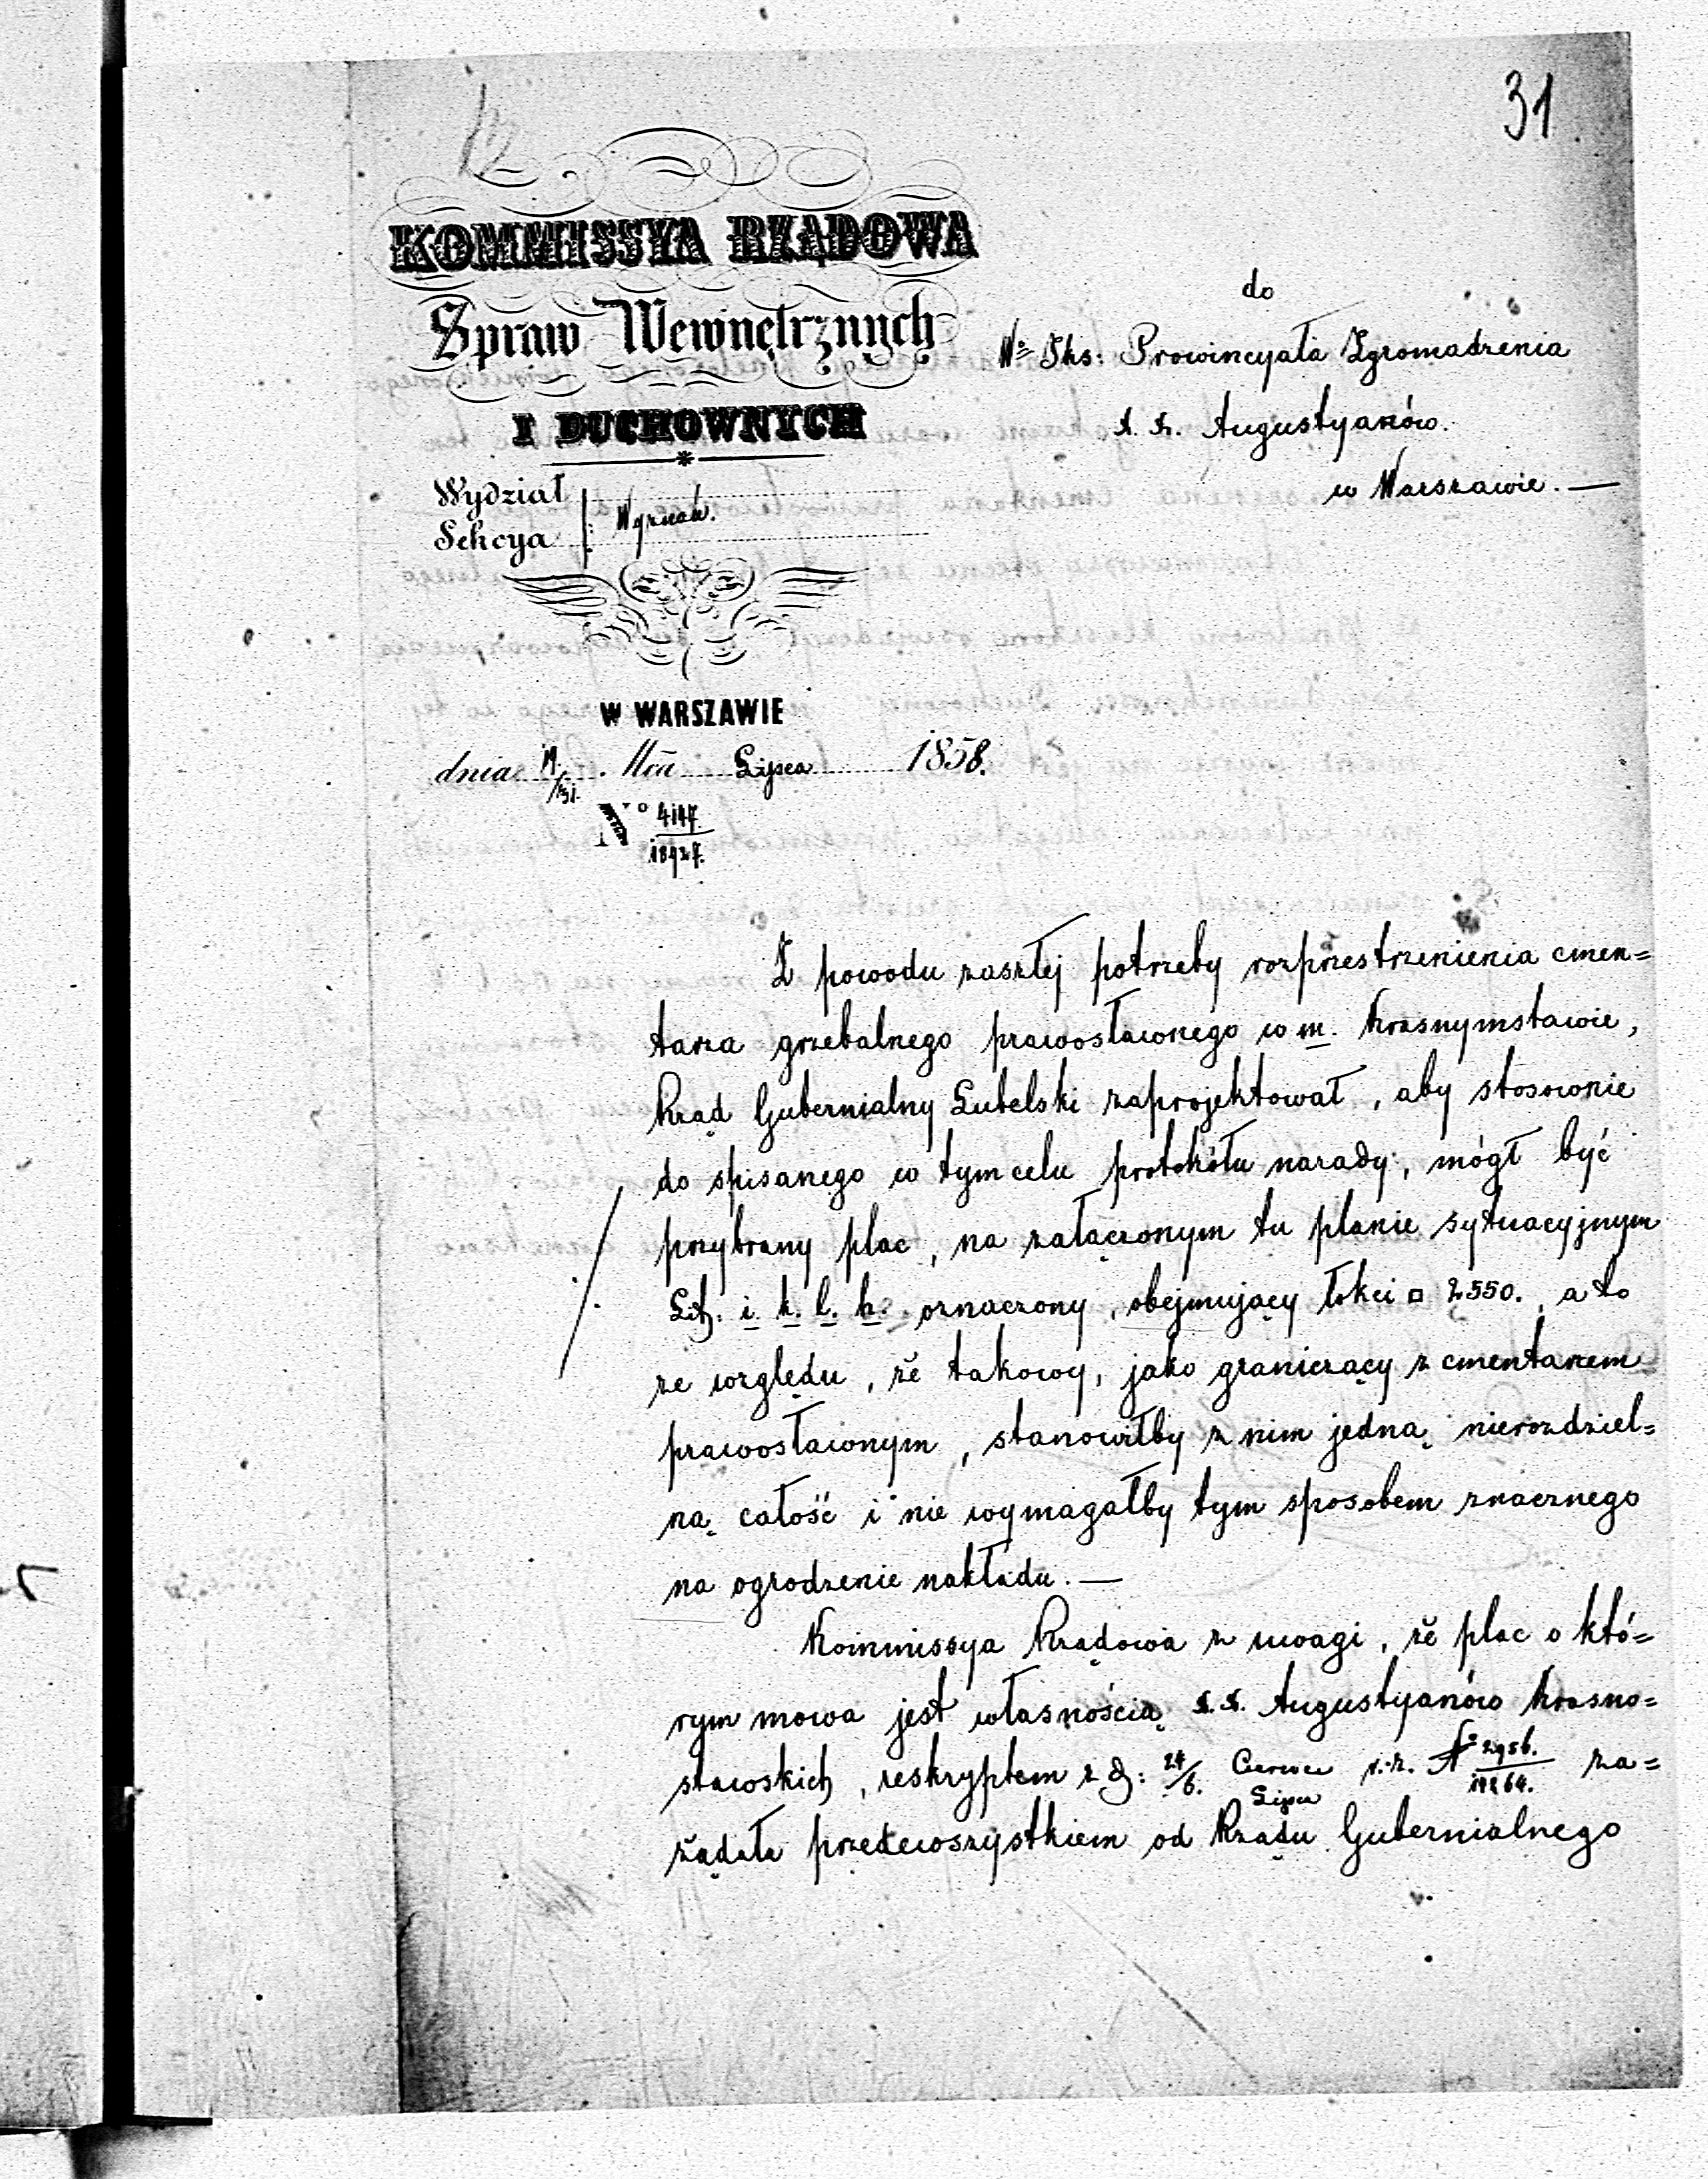 31
KOMMISSYA RZĄDOWA
Spraw Wewnętrznych
I DUCHOWNYCH
Wydział
Sekcya Wyznań.
W WARSZAWIE
dnia 19/31. Mca Lipca 1858.
N° 4147/18927.
do
W° Jks: Prowincyała Zgromadzenia
X. X. Augustyanów.
w Warszawie. —
Z powodu zaszłej potrzeby rozprzestrzenienia cmen=
tarza grzebalnego prawosławnego w m. Krasnymstawie,
Rząd Gubernialny Lubelski zaprojektował, aby stosownie
do spisanego w tym celu protokółu narady, mógł być
przybrany plac, na załączonym tu planie sytuacyjnym
Lit. i. k. l. h. oznaczony, obejmujący łokci □ 2550. a to
ze względu, że takowy, jako graniczący z cmentarzem
prawosławnym, stanowiłby z nim jedną nierozdziel=
ną całość i nie wymagałby tym sposobem znacznego
na ogrodzenie nakładu. —
Kommissya Rządowa z uwagi, że plac o któ=
rym mowa jest własnością X.X. Augustyanów Krasno=
stawskich, reskryptem z d: 24/6. Czerwca/Lipca r. z. N° 2956./19264. za=
żądała przedewszystkiem od Rządu Gubernialnego